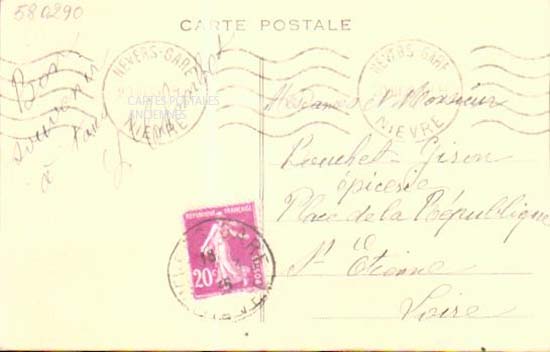 580290
CARTE POSTALE
NEVERS-GARE
NIEVRE
NEVERS-GARE
NIEVRE
CARTES POSTALES
ANCIENNES
Bon
souvenir
à
Mesdames & Monsieur
Ponchet-Giron
épicerie
Place de la République
St Etienne
Loire
REPUBLIQUE FRANÇAISE
20c
POSTES
GARE
18
35